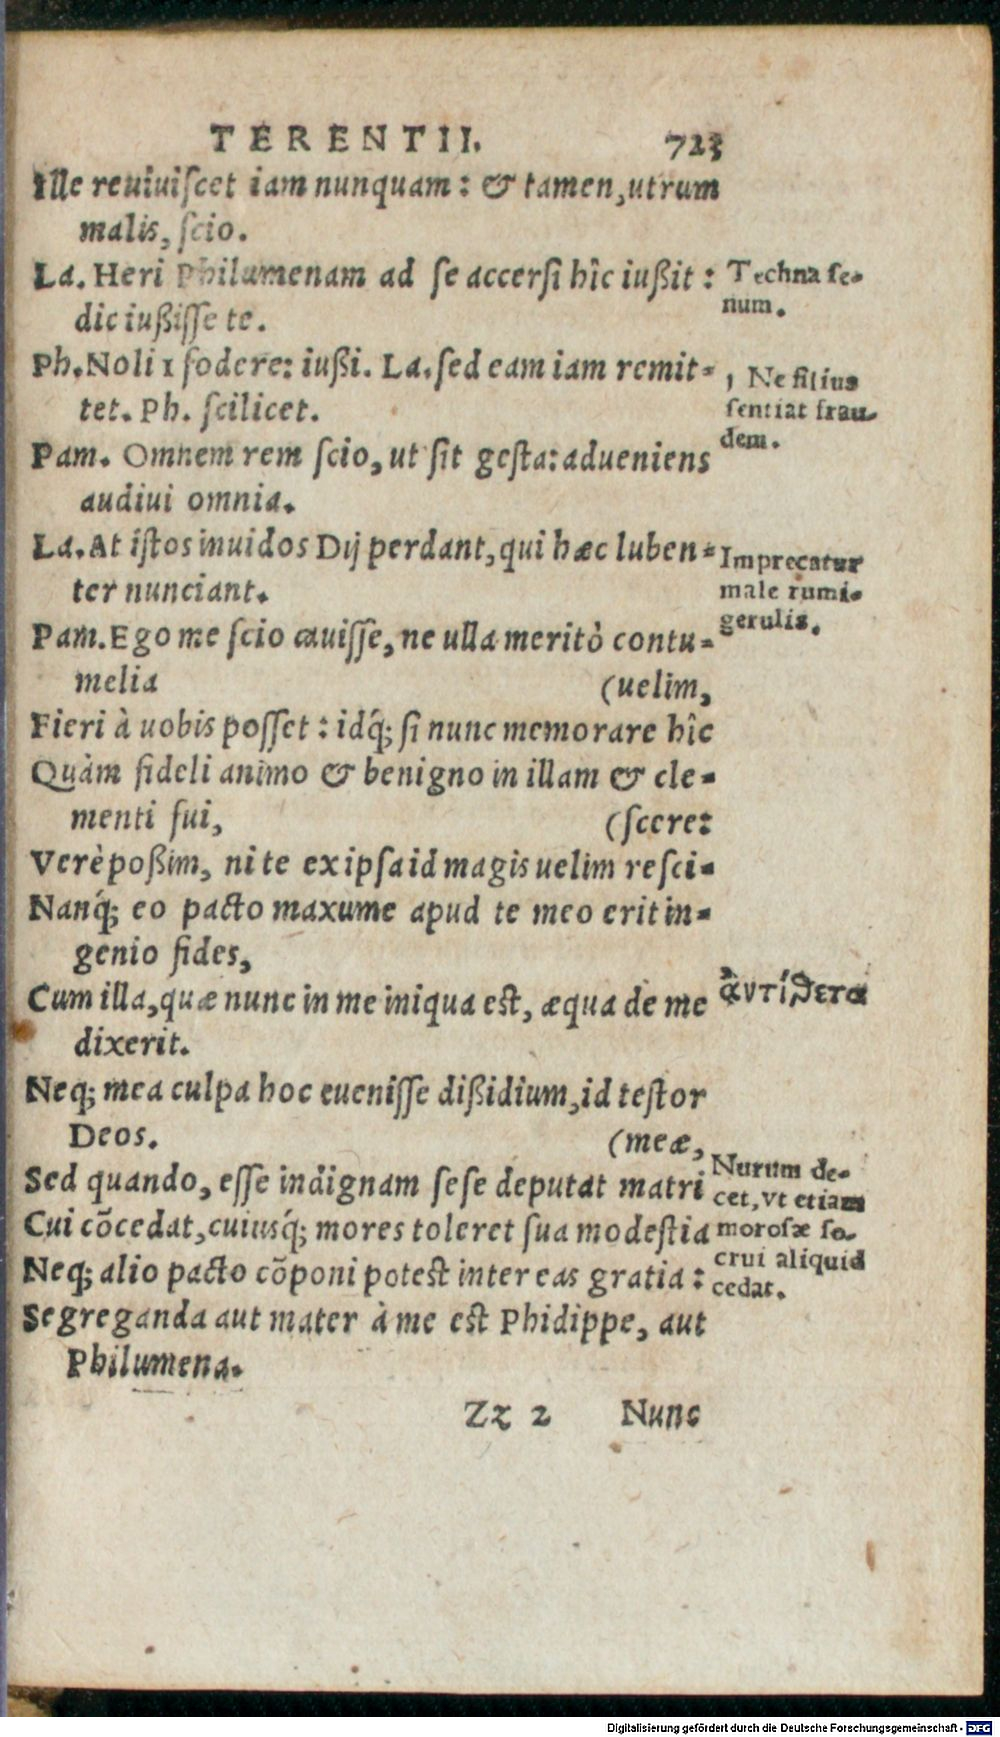 TERENTII. 723
Ille reuiuiscet iam nunquam: & tamen, utrum
malis, scio.
La. Heri Philumenam ad se accersi hîc iußit:
dic iußisse te.
Ph. Noli fodere: iußi. La. sed eam iam remit-
tet. Ph. scilicet.
Pam. Omnem rem scio, ut sit gesta: adueniens
audiui omnia.
La. At istos inuidos Dij perdant, qui hæc luben-
ter nunciant.
Pam. Ego me scio cauisse, ne ulla meritò contu-
melia (uelim,
Fieri à uobis posset: idq́; si nunc memorare hîc
Quàm fideli animo & benigno in illam & cle-
menti fui, (scere:
Verè poßim, ni te ex ipsa id magis uelim resci-
Nanq́; eo pacto maxume apud te meo erit in-
genio fides,
Cum illa, quæ nunc in me iniqua est, æqua de me
dixerit.
Neq; mea culpa hoc euenisse dißidium, id testor
Deos. (meæ,
Sed quando, esse indignam sese deputat matri
Cui cõcedat, cuiusq́; mores toleret sua modestia
Neq; alio pacto cõponi potest inter eas gratia:
Segreganda aut mater à me est Phidippe, aut
Philumena.
Zz 2 Nunc
Techna se-
num.
Ne filius
sentiat frau-
dem.
Imprecatur
male rumi-
gerulis.
ἀντίθετα
Nurum de-
cet, vt etiam
morosæ so-
crui aliquid
cedat.
Digitalisierung gefördert durch die Deutsche Forschungsgemeinschaft - DFG